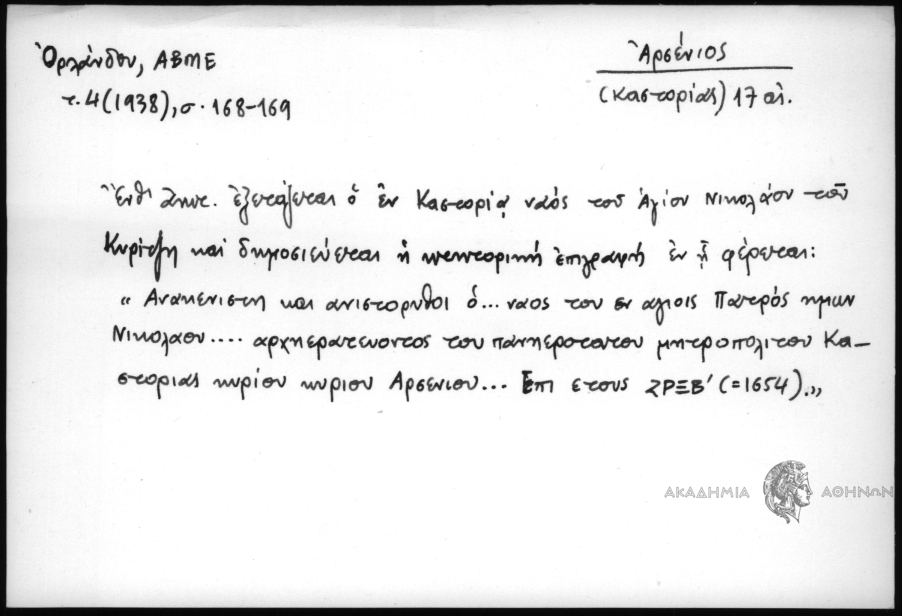 Ὀρλάνδου, ΑΒΜΕ
τ. 4 (1938), σ. 168-169
Ἀρσένιος
(Καστορίας) 17 αἰ.
Ἔνθ' ἀνωτ. ἐξετάζεται ὁ ἐν Καστορίᾳ ναός τοῦ Ἁγίου Νικολάου τοῦ
Κυρίτζη καί δημοσιεύεται ἡ κτιτορική ἐπιγραφή ἐν ᾗ φέρεται:
"Ανακενιστη και ανιστορηθοι ὁ... ναος του εν αγιοις Πατρός ημων
Νικολαου.... αρχηερατευοντος του πανηεροτατου μητροπολιτου Κα-
στοριας κυρίου κυριου Αρσενιου... Επι ετους ΖΡΞΒ' (=1654).„
ΑΚΑΔΗΜΙΑ ΑΘΗΝΩΝ